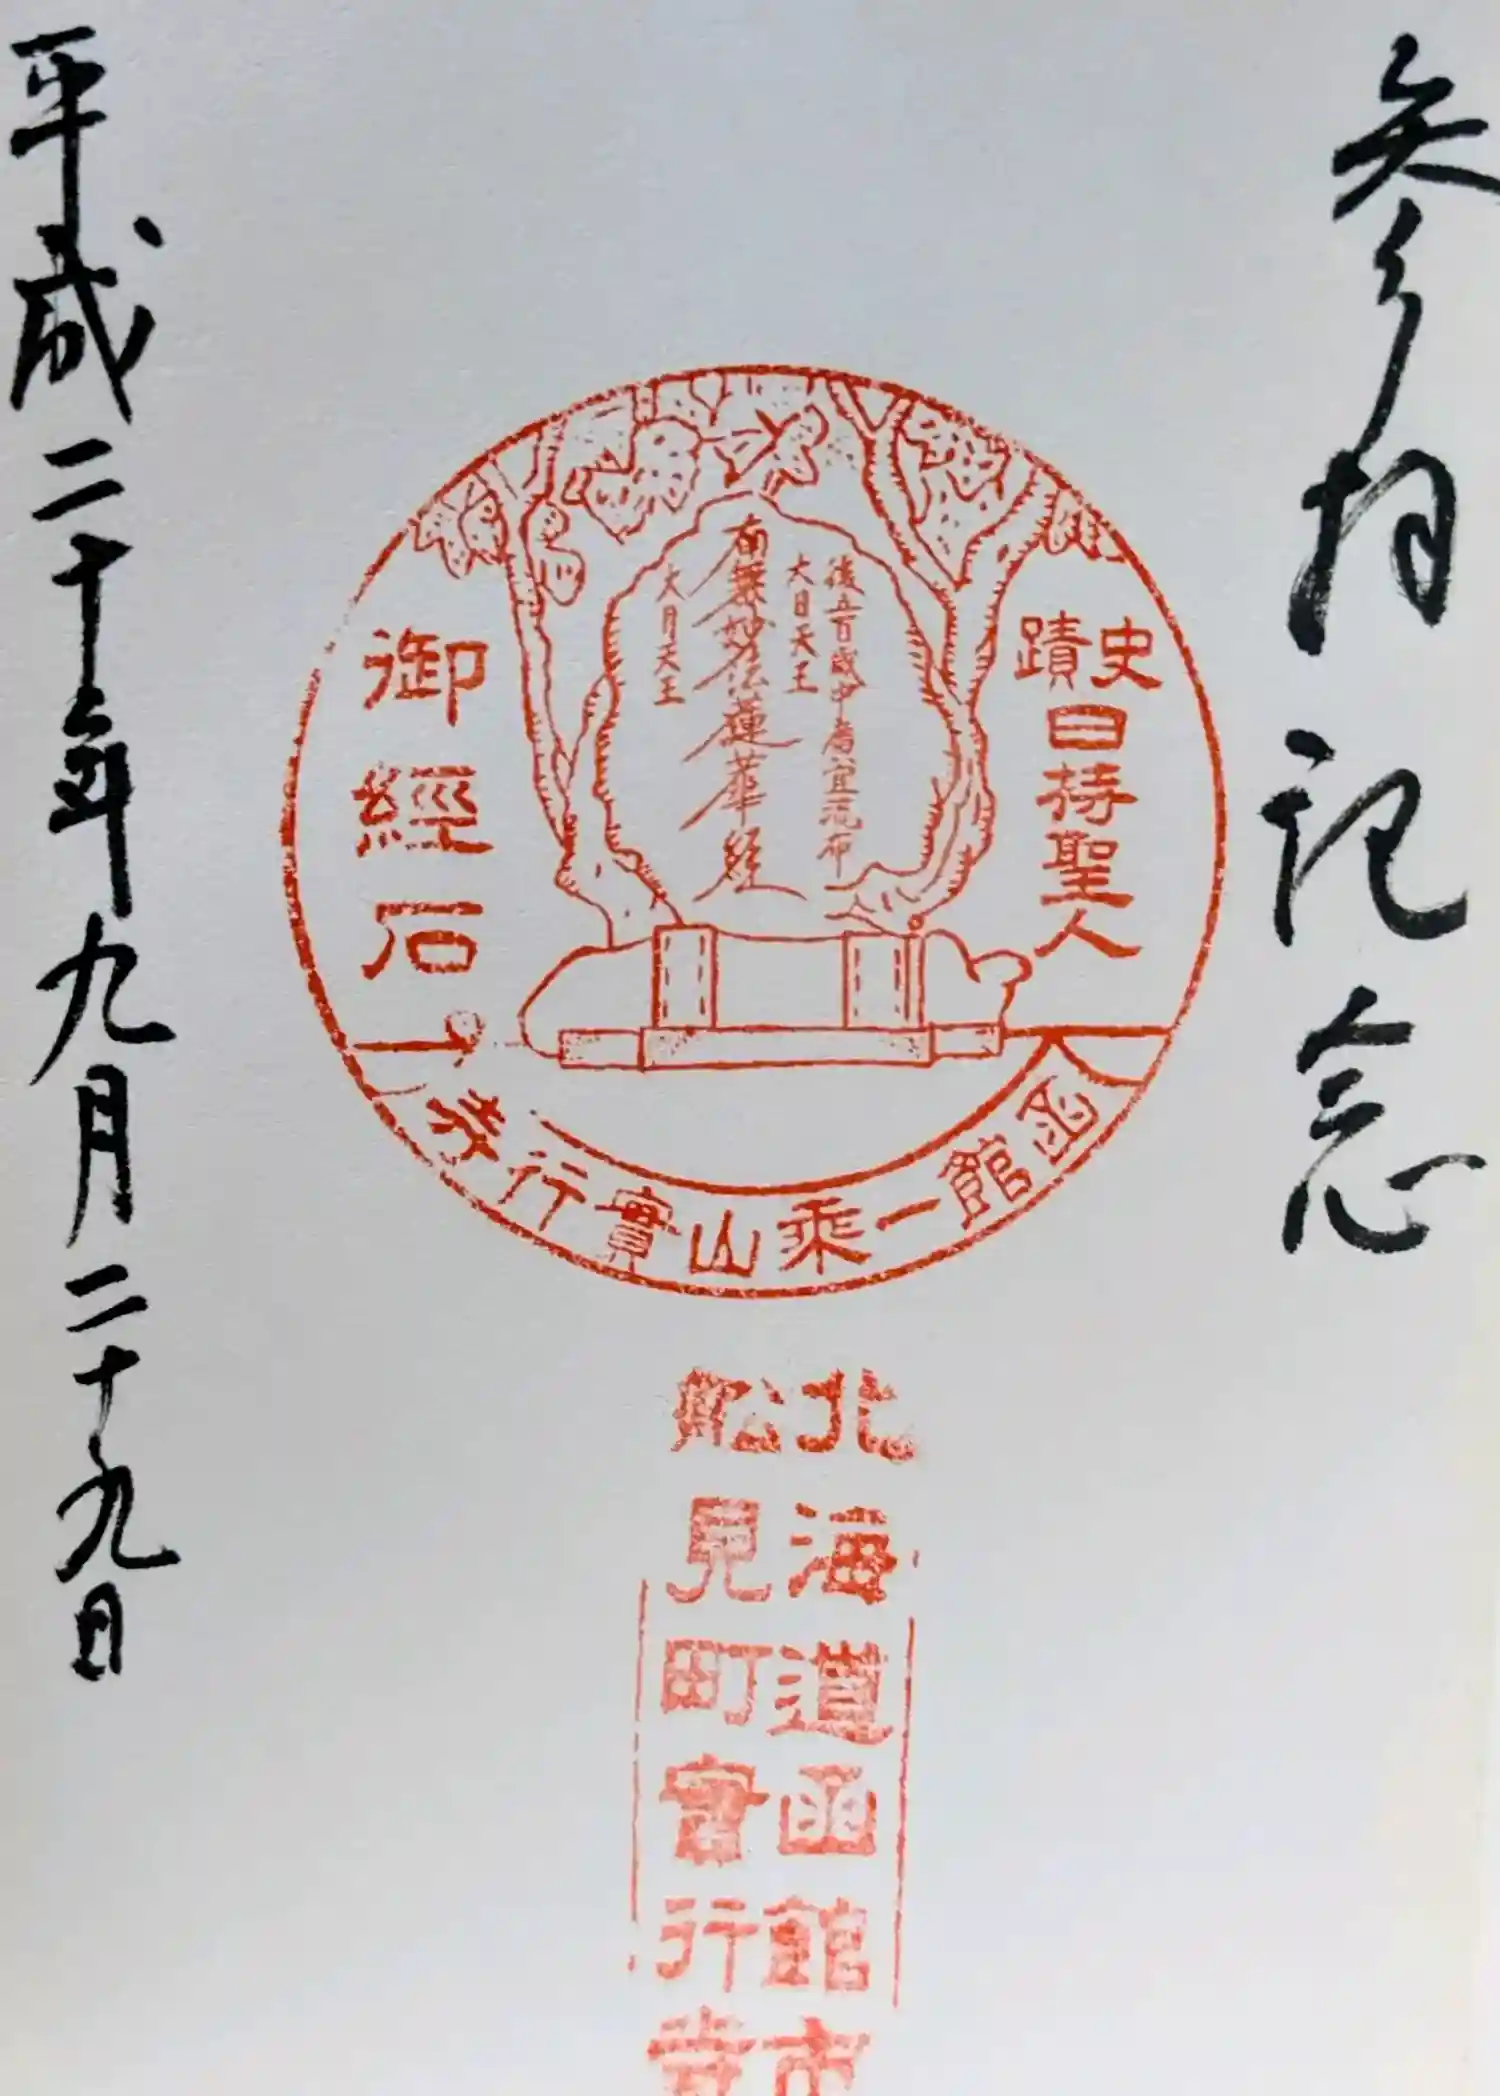 参拝記念
史蹟
日持聖人
後五百歳中廣宣流布
大日天王
南無妙法蓮華経
大月天王
御經石
函館一乘山實行寺
北海道函館市
船見町實行寺
平成二十年九月二十九日